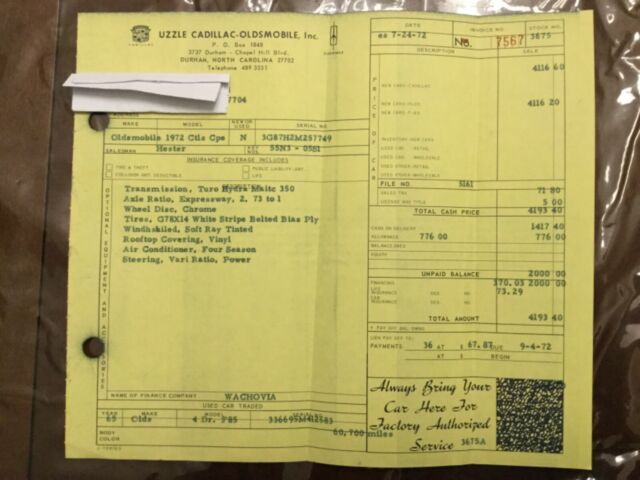 UZZLE CADILLAC-OLDSMOBILE, Inc.
P. O. Box 1849
3737 Durham - Chapel Hill Blvd.
DURHAM, NORTH CAROLINA 27702
Telephone 489 3331
7704
DATE
7-24-72
INVOICE NO.
No. 7567
STOCK NO.
3675
DESCRIPTION
SALE
PRICE OF CAR
4116 60
NEW CARS-CADILLAC
NEW CARS-OLDS
4116 20
MAKE MODEL NEW OR USED SERIAL NO.
Oldsmobile 1972 Ctls Cpe N 3G87H2M257749
SALESMAN Hester KEY NOS. 55N3 - 05S1
INSURANCE COVERAGE INCLUDES
FIRE & THEFT
PUBLIC LIABILITY-AMT.
COLLISION-AMT. DEDUCTIBLE
LIFE
OPTIONAL EQUIPMENT AND ACCESSORIES
Transmission, Turo Hydra Maitc 350
Axle Ratio, Expressway, 2, 73 to 1
Wheel Disc, Chrome
Tires, G78X14 White Stripe Belted Bias Ply
Windhsiled, Soft Ray Tinted
Rooftop Covering, Vinyl
Air Conditioner, Four Season
Steering, Vari Ratio, Power
FILE NO. 5161
SALES TAX 71 80
LICENSE AND TITLE 5 00
TOTAL CASH PRICE 4193 40
CASH ON DELIVERY 1417 40
ALLOWANCE 776 00 776 00
BALANCE OWED
EQUITY
UNPAID BALANCE 2000 00
FINANCING 370.03 2000 00
LIFE INSURANCE YES NO 73.29
CAR INSURANCE YES NO
TOTAL AMOUNT 4193 40
PAYMENTS 36 AT $ 67.87 DUE 9-4-72
AT $ BEGIN
NAME OF FINANCE COMPANY WACHOVIA
USED CAR TRADED
YEAR MAKE MODEL SERIAL NO.
65 Olds 4 Dr. F85 336695M412583
60,700 miles
BODY COLOR
Always Bring Your
Car Here For
Factory Authorized
Service 3675A